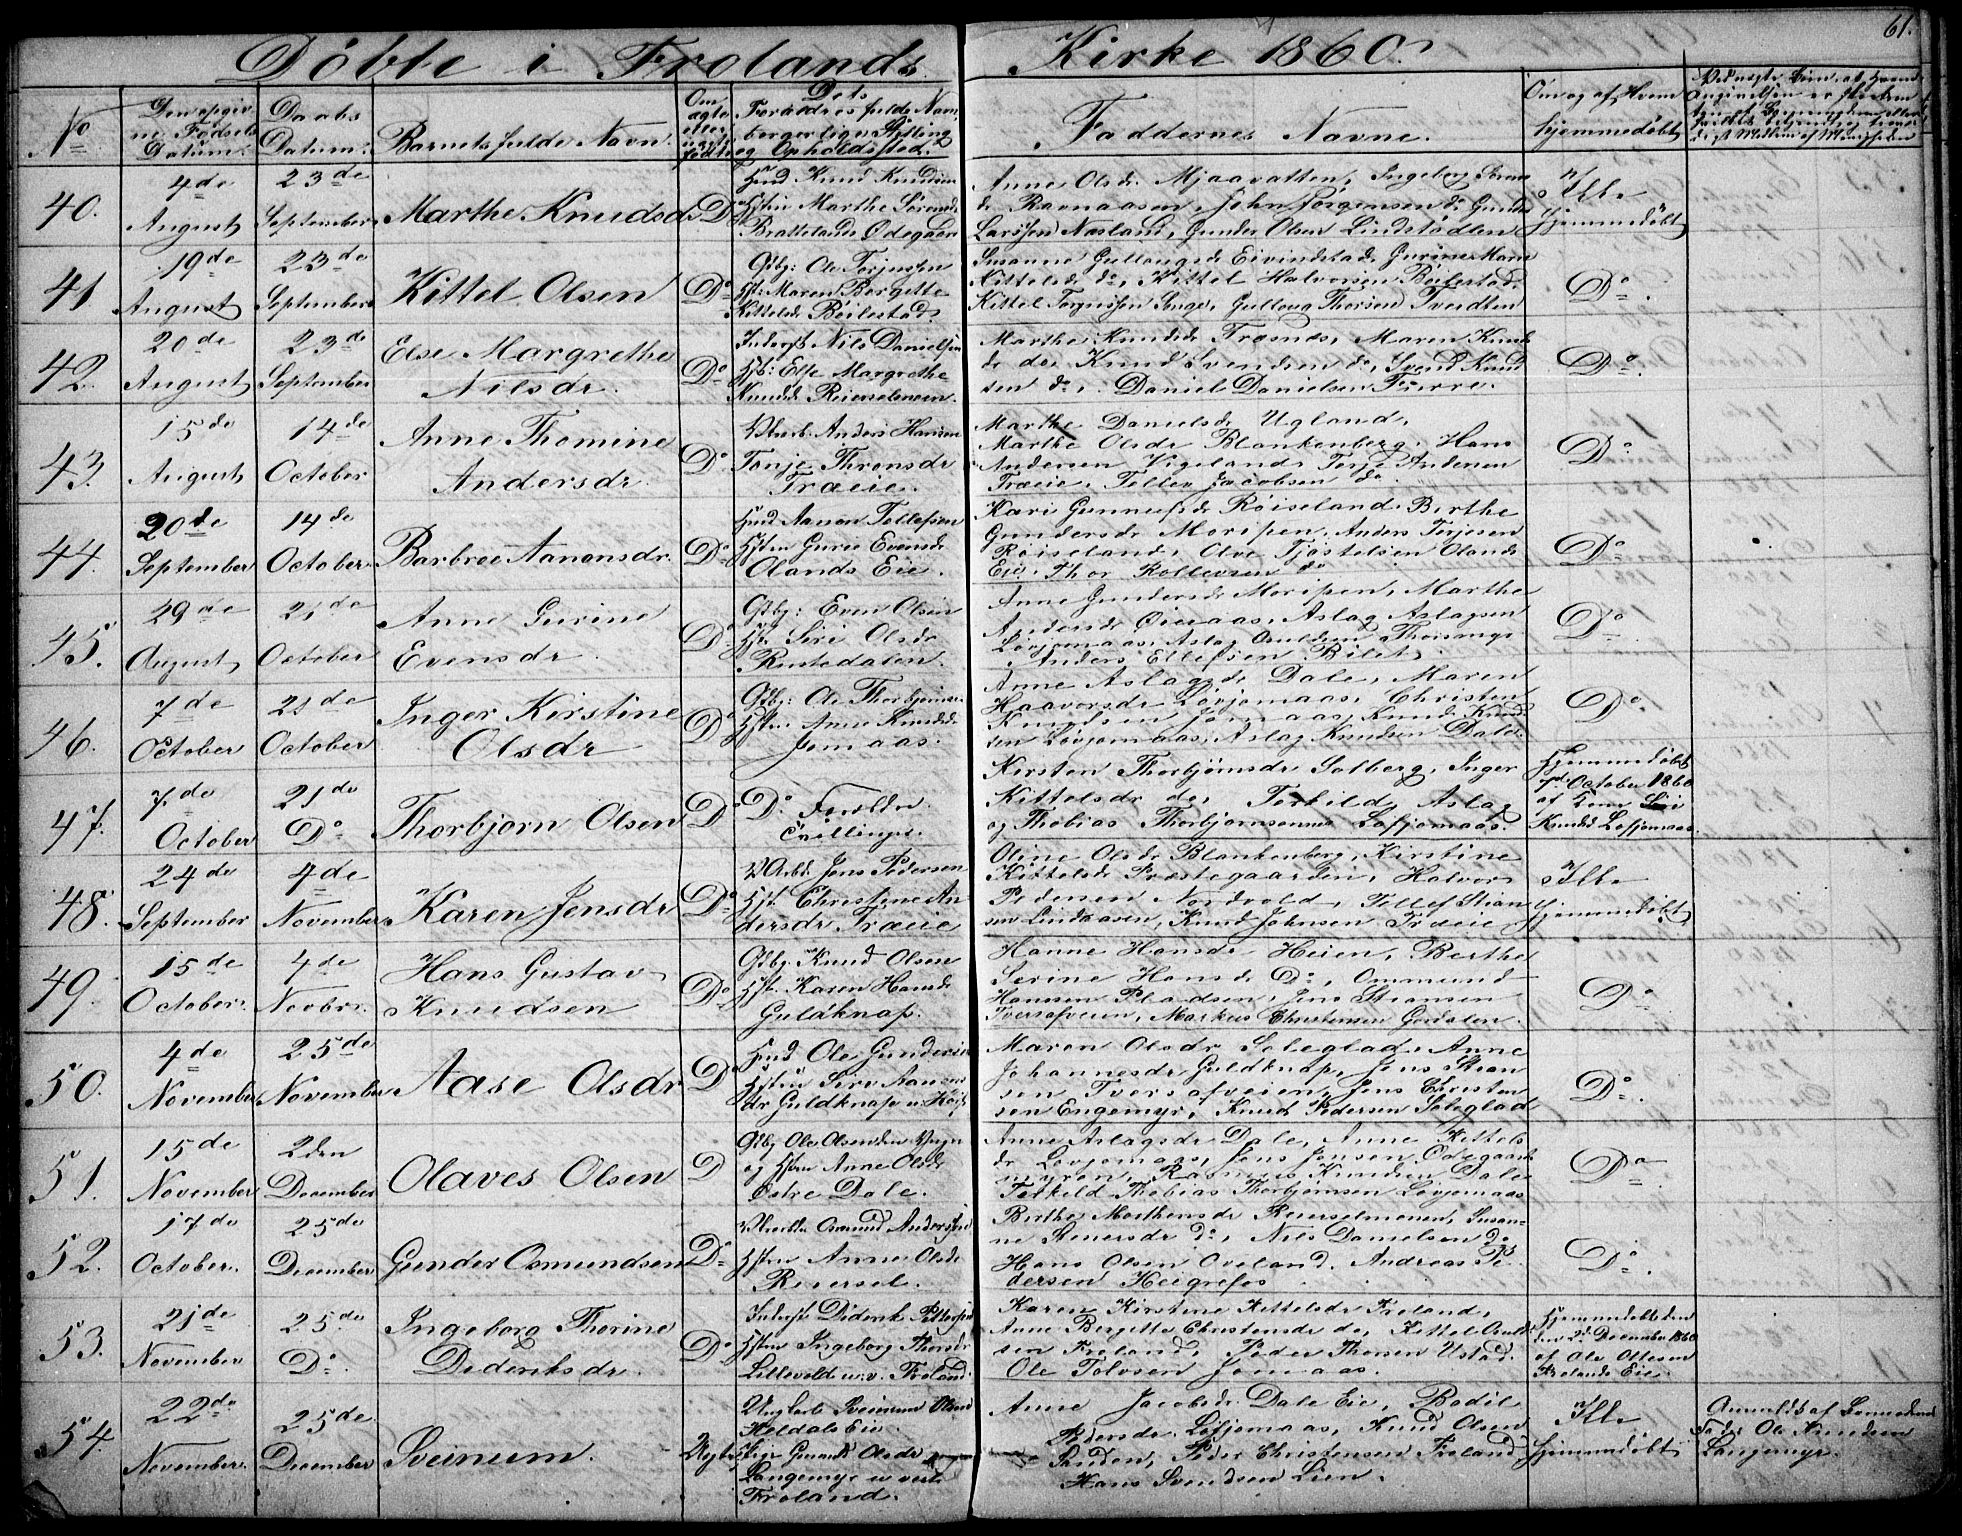 61.
Döbte i Frolands Kirke 1860.
No
Den opgiv
ne Fødsels
Datum.
Daabs
Datum.
Barnets fulde Navn.
Om
ægte
eller
uægte
født
Dets
Forældres fulde Navn
borgerlige Stilling
og Opholdssted.
Faddernes Navne.
Om og af Hvem
hjemmedøbt
40.
4de
August
23de
September
Marthe Knudsdr
Do
Hmd Knud Knudsen
Hstru Marthe Sörensdr
Brattelands Ødegaard
Anne Olsdr Mjaavatten, Ingeborg Sörens
dr Ravnaasen, John Jörgensen do Gunder
Larssen Næsland, Gunder Olsen Lindstødlen
Ikke
hjemmedöbt
41
19de
August
23de
September
Kittel Olsen
Do
Gdbg: Ole Terjussen
Hst. Maren Bergette
Kittelsdr Böilestad.
Susanne Gullaugsdr Eivindstad, Gurine Marie
Kittelsdr do, Kittel Halvorsen Böilestad,
Kittel Torjussen Senge, Gulloug Thorsen Tveidten
Do
42.
20de
August
23de
September
Else Margrethe
Nilsdr.
Do
Inderst Nils Danielsen
Hst: Else Margrethe
Knudsdr Reierselmoen.
Marthe Knudsdr Trosnes, Maren Knuds
dr do, Knud Svendsen do, Svend Knud
sen do, Daniel Danielsen Furre.
Do
43.
15de
August
14de
October
Anne Thomine
Andersdr.
Do
Anders Hansen
Tonje Thronsdr
Træeie.
Marthe Danielsdr Ugland,
Marthe Olsdr Blankenberg, Hans
Andersen Vigeland, Terje Andersen
Træeie, Tellev Jacobsen do.
Do
44.
20de
September
14de
October
Barbroe Aanonsdr.
Do
Hmd Aanon Tellefsen
Hstru Gurie Evensdr
Olands Eie.
Kari Gunnufsdr Röiseland, Birthe
Gundersdr Moripen, Anders Terjesen
Röiseland, Olve Tjøstelsen Olands
Eie, Thor Rollevsen do
Do
45.
29de
August
21de
October
Anne Gurine
Evensdr.
Do
Gdbg: Even Olsen
Hst. Siri Olsdr
Rustedalen.
Anne Gundersdr Moripen, Marthe
Andersdr Øieaas, Aslag Aslagsen
Lövjomaas, Aslag Thorsange
Anders Ellefsen Bilet.
Do
46.
7de
October
21de
October
Inger Kirstine
Olsdr
Do
Gdbg: Ole Thorbjørnsen
Hstru Anne Knudsdr
Jomaas.
Anne Aslagsdr Dale, Maren
Haavorsdr Lövjomaas, Christen
Knudsen Jomaas, Knud Knud
sen Lövjomaas, Aslag Knudsen Dale.
Do
47.
7de
October
21de
Do
Thorbjörn Olsen
Do
Do Forældre.
Tvillinger.
Kirsten Thorbjörnsdr Solberg, Inger
Kittelsdr do, Torkild, Aslag
og Thobias Thorbjörnsønner Lofjomaas.
Hjemmedöbt
7de October 1860
af Kone Siri
Knudsd Lofjomaas.
48.
24de
September
4de
November
Karen Jensdr
Do
Jens Pedersen
Hst. Christine An
dersdr Træeie
Oline Olsdr Blankenberg, Kirstine
Kittelsdr Præstegaarden, Halvor
Pedersen Nordvold, Tellef Stian
sen Lindaasen, Knud Johnsen Træeie
Ikke
hjemmedöbt
49.
15de
October.
4de
Novbr.
Hans Gustav
Knudsen
Do
Gdbg. Knud Olsen
Hst. Karen Hansdr
Guldknap.
Hanne Hansdr Heien, Berthe
Serine Hansdr Do, Ommund
Hanssen Pladsen, Jens Stiansen
Tversafveien, Markus Christensen
Do
50.
4de
November
25de
November
Aase Olsdr
Do
Hmd Ole Gundersen
Hstru Siri Aanon
dr Guldknap
Maren Olsdr Soleglad, Anne
Johannesdr Guldknap, Jens Stian
sen Tversafveien, Jens Christen
sen Engemyr, Knud Pedersen Soleglad
Do
51.
15de
November
2den
December
Olaves Olsen
D
Gdbg Ole Olsen den Yngre
og Hstru Anne Olsdr
Østre Dale.
Anne Aslagsdr Dale, Anne Kittels
dr Lovjomaas, Jens Jensen Ødegaards
myren, Rasmus Knudsen Dale
Terkild Thobias Thorbjörnsen Lovjomaas
Do
52.
17de
October.
25de
December
Gunder Osmundsen
Do
Osmund Andersen
Hstru Anne Olsdr
Reiersel.
Birthe Morthensdr Reierselmonen, Susan-
ne Steversdr do, Nils Danielsen do
Hans Olsen Oveland. Andreas Pe
dersen Heigrefos
Do
53.
21de
November
25de
Do
Ingeborg Thorine
Dideriksdr.
Do
Inderst Diderik Pettersen
Hstru Ingeborg Thorsdr
Lillevold u. v. Froland.
Karen Kirstine Kittelsdr Froland,
Anne Bergitte Christensdr do, Kittel
sen Froland, Peder Thorsen Ustad.
Ole Tolvsen Jomaas.
Hjemmedöbt den
2d December 1860
af Ole Ottesen
Frolands Eie.
54.
22de
November.
25de
December
Sveinum.
Uægte
Ungkarl Sveinum Olsen
Heldals Eie.
Pige Gunild Olsdr
Langemyr u. vest
Froland.
Anne Jacobsdr Dale Eie, Bodil
Pedersdr Lofjomaas, Knud Olsen
Sanden, Peder Christensen Froland,
Hans Svendsen Lien.
Ikke
hjemmedöbt
Anmeldt af
Fader Ole Knudsen
Langemyr.